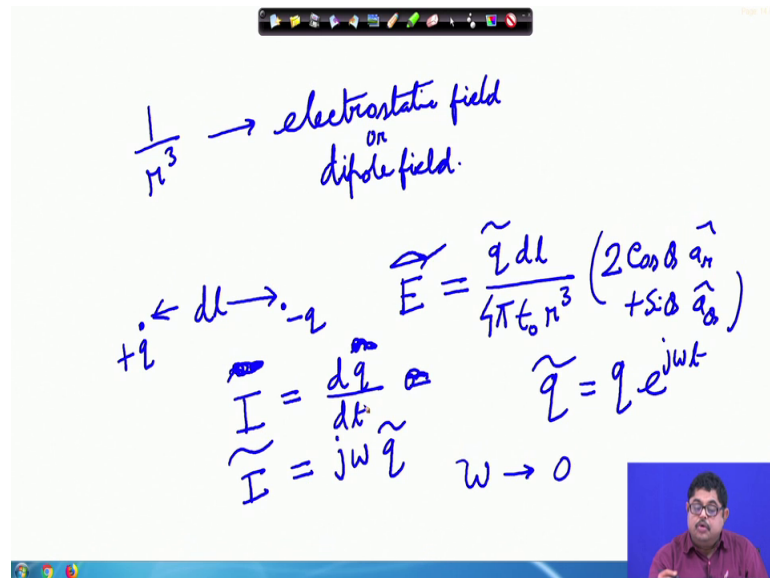 1/r³ → electrostatic field
or
dipole field.
+q ← dl → -q
Ẽ = q̃ dl / 4π ε₀ r³ (2 cos θ â_r + sin θ â_θ)
I = dq/dt
q̃ = q e^{jωt}
Ĩ = jω q̃
ω → 0